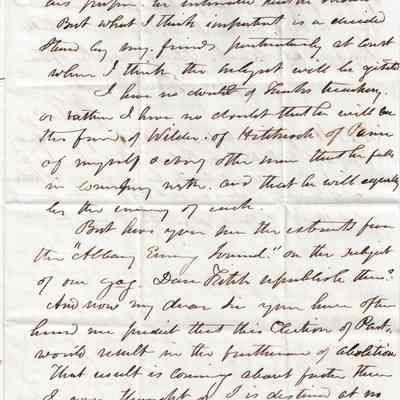 his purpose
But what I think important is a decided
stand by my friends particularly at court
where I think the subject will be agitated
I have no doubt of
or rather I have no doubt that he will be
the friend of Wilder of Hitchcock of
of myself & every other man that he falls
in company with. and that he will equally
be the enemy of each.
But have you seen the extracts from
the "Albany Evening Journal" on the subject
of our gag. Dare republish them?
And now my dear Sir you have often
heard me predict that this Election of
would result in the furtherance of abolition
That result is coming about faster than
I ever thought is destined at no